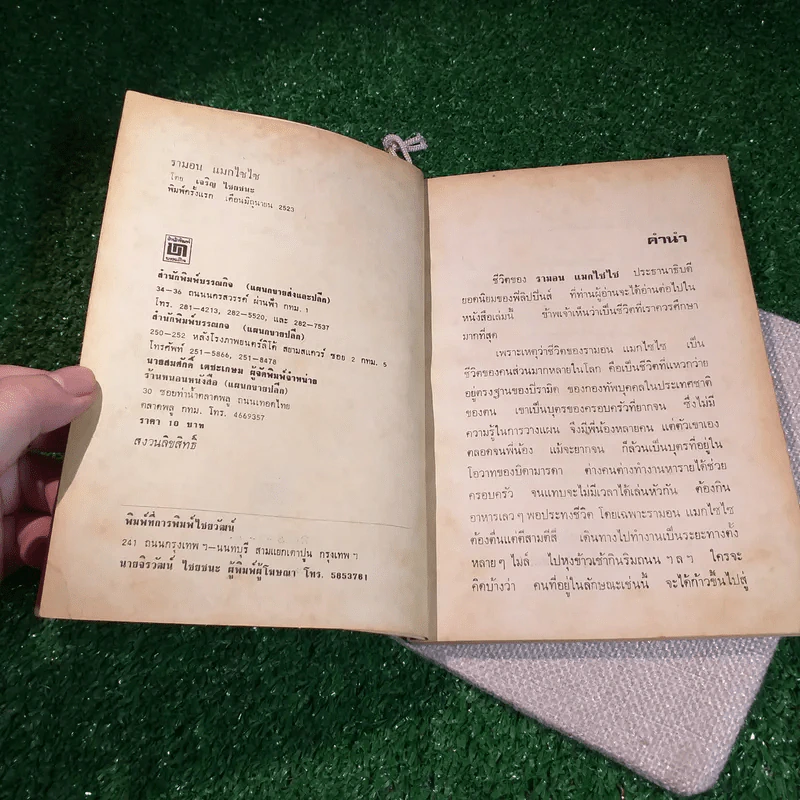 รามอน แมกไซไซ
โดย เจริญ ไชยชนะ
พิมพ์ครั้งแรก เดือนมิถุนายน 2523
สำนักพิมพ์บรรณกิจ (แผนกขายส่งและปลีก)
34-36 ถนนนครสวรรค์ ผ่านฟ้า กทม. 1
โทร. 281-4213, 282-5520, และ 282-7537
สำนักพิมพ์บรรณกิจ (แผนกขายปลีก)
250-252 หลังโรงภาพยนตร์ลิโด้ สยามสแควร์ ซอย 2 กทม. 5
โทรศัพท์ 251-5866, 251-8478
นายสมศักดิ์ เตชะเกษม ผู้จัดพิมพ์จำหน่าย
ร้านหนอนหนังสือ (แผนกขายปลีก)
30 ซอยท่าน้ำตลาดพลู ถนนเทอดไทย
ตลาดพลู กทม. โทร. 4669357
ราคา 10 บาท
สงวนลิขสิทธิ์
พิมพ์ที่การพิมพ์ไชยวัฒน์
241 ถนนกรุงเทพ ฯ-นนทบุรี สามแยกเตาปูน กรุงเทพ ฯ
นายจิรวัฒน์ ไชยชนะ ผู้พิมพ์ผู้โฆษณา โทร. 5853761
คำนำ
ชีวิตของ รามอน แมกไซไซ ประธานาธิบดี
ยอดนิยมของฟิลิปปินส์ ที่ท่านผู้อ่านจะได้อ่านต่อไปใน
หนังสือเล่มนี้ ข้าพเจ้าเห็นว่าเป็นชีวิตที่เราควรศึกษา
มากที่สุด
เพราะเหตุว่าชีวิตของรามอน แมกไซไซ เป็น
ชีวิตของคนส่วนมากหลายในโลก คือเป็นชีวิตที่แหวกว่าย
อยู่ตรงฐานของปิรามิด ของกองทัพบุคคลในประเทศชาติ
ของตน เขาเป็นบุตรของครอบครัวที่ยากจน ซึ่งไม่มี
ความรู้ในการวางแผน จึงมีพี่น้องหลายคน แต่ตัวเขาเอง
ตลอดจนพี่น้อง แม้จะยากจน ก็ล้วนเป็นบุตรที่อยู่ใน
โอวาทของบิดามารดา ต่างคนต่างทำงานหารายได้ช่วย
ครอบครัว จนแทบจะไม่มีเวลาได้เล่นหัวกัน ต้องกิน
อาหารเลว ๆ พอประทังชีวิต โดยเฉพาะรามอน แมกไซไซ
ต้องตื่นแต่ตีสามตีสี่ เดินทางไปทำงานเป็นระยะทางตั้ง
หลาย ๆ ไมล์ ไปหุงข้าวเช้ากินริมถนน ฯ ล ฯ ใครจะ
คิดบ้างว่า คนที่อยู่ในลักษณะเช่นนี้ จะได้ก้าวขึ้นไปสู่